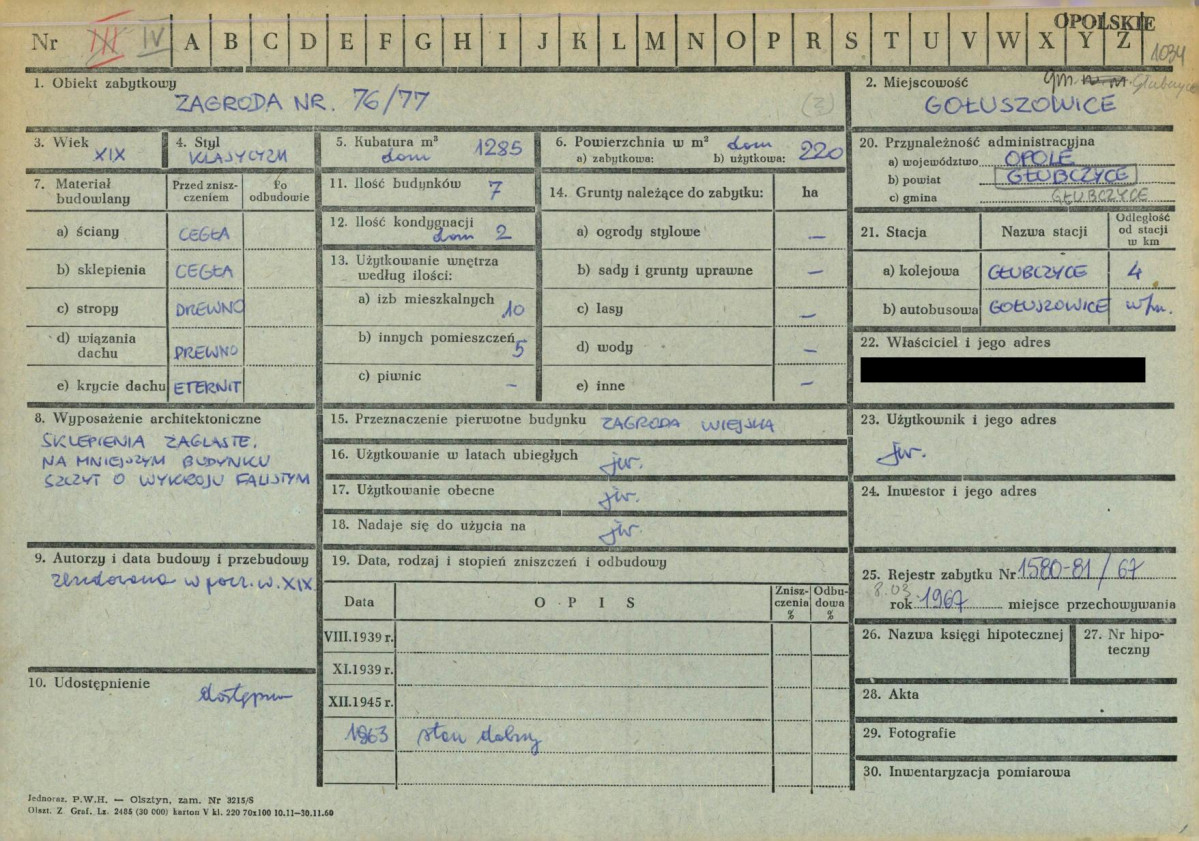 OPOLSKIE
Nr III IV A B C D E F G H I J K L M N O P R S T U V W X Y Z
1034
1. Obiekt zabytkowy
ZAGRODA NR. 76/77
(3)
2. Miejscowość
gm. Głubczyce
GOŁUSZOWICE
3. Wiek
XIX
4. Styl
KLASYCYZM
5. Kubatura m³
dom 1285
6. Powierzchnia w m² dom
a) zabytkowa: b) użytkowa: 220
20. Przynależność administracyjna
a) województwo OPOLE
b) powiat GŁUBCZYCE
c) gmina GŁUBCZYCE
7. Materiał budowlany
Przed znisz-
czeniem
Po
odbudowie
a) ściany CEGŁA
b) sklepienia CEGŁA
c) stropy DREWNO
d) wiązania
dachu DREWNO
e) krycie dachu ETERNIT
11. Ilość budynków 7
12. Ilość kondygnacji
dom 2
13. Użytkowanie wnętrza
według ilości:
a) izb mieszkalnych 10
b) innych pomieszczeń 5
c) piwnic –
14. Grunty należące do zabytku: ha
a) ogrody stylowe –
b) sady i grunty uprawne –
c) lasy –
d) wody –
e) inne –
21. Stacja Nazwa stacji
Odległość
od stacji
w km
a) kolejowa GŁUBCZYCE 4
b) autobusowa GOŁUSZOWICE w/m.
22. Właściciel i jego adres
8. Wyposażenie architektoniczne
SKLEPIENIA ŻAGLASTE.
NA MNIEJSZYM BUDYNKU
SZCZYT O WYKROJU FALISTYM
15. Przeznaczenie pierwotne budynku ZAGRODA WIEJSKA
16. Użytkowanie w latach ubiegłych jw.
17. Użytkowanie obecne jw.
18. Nadaje się do użycia na jw.
23. Użytkownik i jego adres
jw.
24. Inwestor i jego adres
9. Autorzy i data budowy i przebudowy
zbudowana w pocz. w. XIX
19. Data, rodzaj i stopień zniszczeń i odbudowy
Data O P I S
Znisz-
czenia
%
Odbu-
dowa
%
VIII.1939 r.
XI.1939 r.
XII.1945 r.
1963 stan dobry
25. Rejestr zabytku Nr 1580-81/67
8.03
rok 1967 miejsce przechowywania
26. Nazwa księgi hipotecznej
27. Nr hipo-
teczny
10. Udostępnienie
dostępna
28. Akta
29. Fotografie
30. Inwentaryzacja pomiarowa
Jednoraz. P.W.H. — Olsztyn, zam. Nr 3215/S
Olszt. Z. Graf. Lz. 2485 (30 000) karton V kl. 220 70x100 10.11—30.11.60